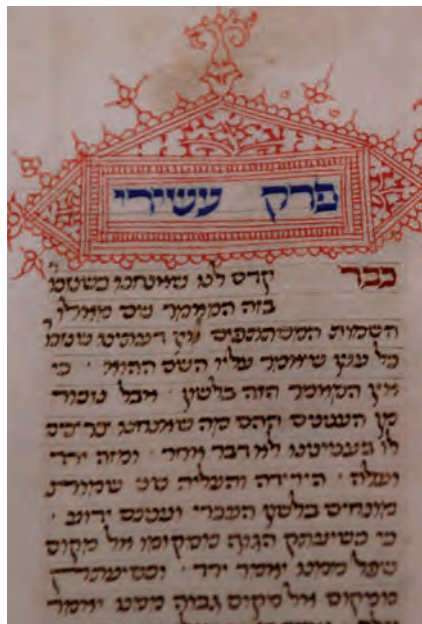 פרק עשירי
כבר קדם לנו שאנחנו כשנזכו
בזה המאמר שם מאלו
השמות המשתתפים אין דעתינו שנזכו
כל ענין שיאמר עליו השם ההוא · כי
אין המאמר הזה בלשון · אבל נזכור
מן הענינים ההם מה שאנחנו צריכים
לו בענינינו לא דבר אחר · ומזה ירד
ועלה · הירידה והעליה שני שמות
מונחים בלשון העברי וענינם ידוע ·
כי כשיעתק הגוף ממקומו אל מקום
שפל ממנו יאמר ירד · וכשיעתק
ממקום אל מקום גבוה ממנו יאמר